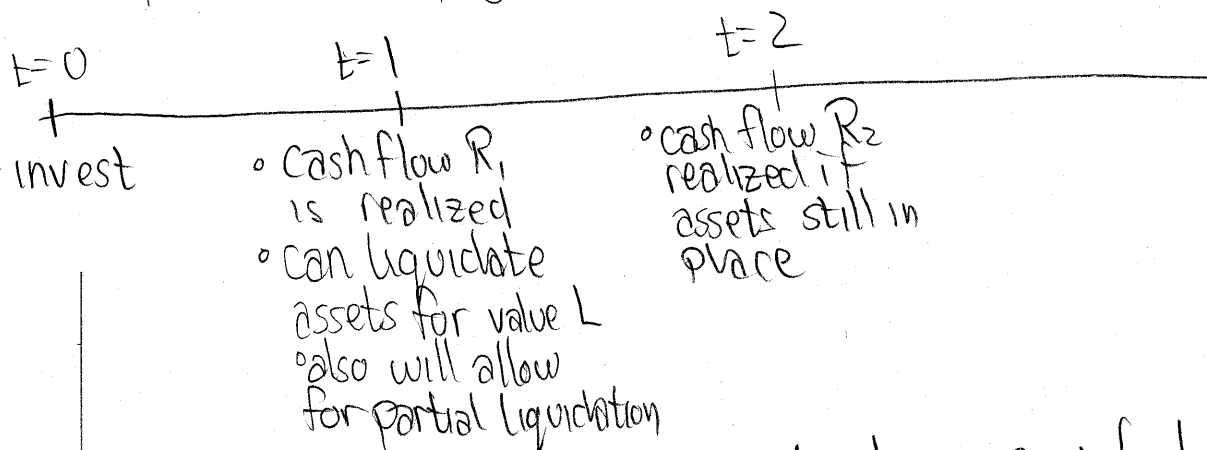 t=0
t=1
t=2
invest
• cash flow R₁
is realized
• can liquidate
assets for value L
• also will allow
for partial liquidation
• cash flow R₂
realized if
assets still in
place